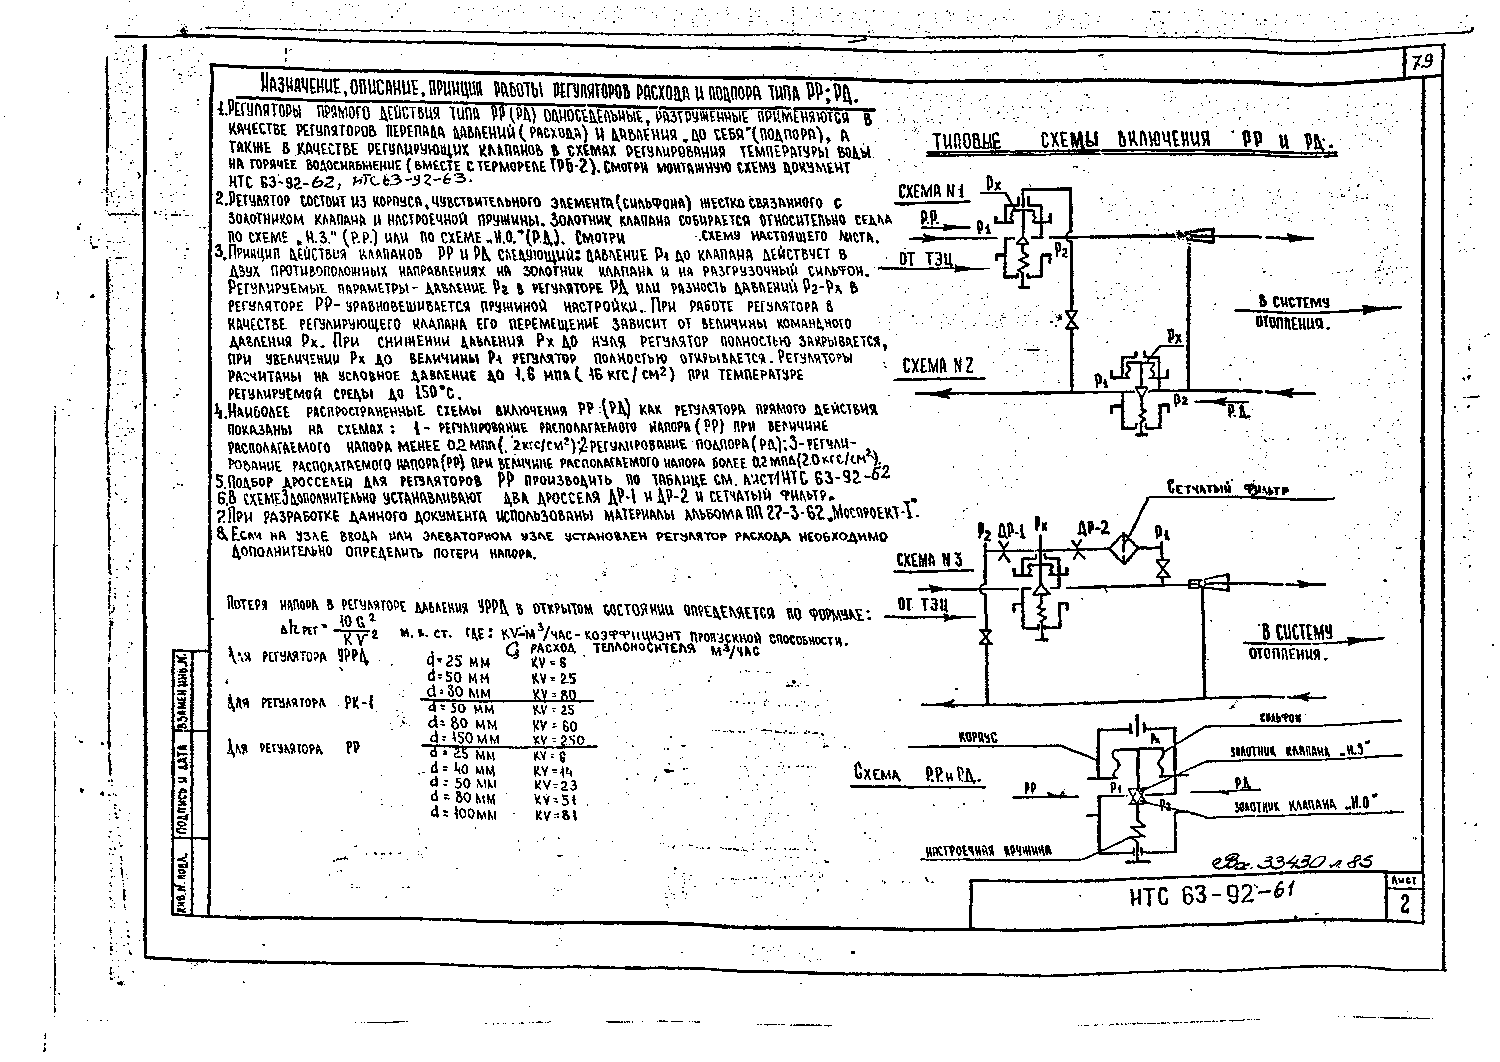 79
НАЗНАЧЕНИЕ, ОПИСАНИЕ, ПРИНЦИП РАБОТЫ РЕГУЛЯТОРОВ РАСХОДА И ПОДПОРА ТИПА РР; РД.
1. РЕГУЛЯТОРЫ ПРЯМОГО ДЕЙСТВИЯ ТИПА РР (РД) ОДНОСЕДЕЛЬНЫЕ, РАЗГРУЖЕННЫЕ ПРИМЕНЯЮТСЯ В
КАЧЕСТВЕ РЕГУЛЯТОРОВ ПЕРЕПАДА ДАВЛЕНИЙ (РАСХОДА) И ДАВЛЕНИЯ „ДО СЕБЯ" (ПОДПОРА), А
ТАКЖЕ В КАЧЕСТВЕ РЕГУЛИРУЮЩИХ КЛАПАНОВ В СХЕМАХ РЕГУЛИРОВАНИЯ ТЕМПЕРАТУРЫ ВОДЫ
НА ГОРЯЧЕЕ ВОДОСНАБЖЕНИЕ (ВМЕСТЕ С ТЕРМОРЕЛЕ ТРБ-2). СМОТРИ МОНТАЖНУЮ СХЕМУ ДОКУМЕНТ
НТС 63-92-62, НТС 63-92-63.
2. РЕГУЛЯТОР СОСТОИТ ИЗ КОРПУСА, ЧУВСТВИТЕЛЬНОГО ЭЛЕМЕНТА (СИЛЬФОНА) ЖЕСТКО СВЯЗАННОГО С
ЗОЛОТНИКОМ КЛАПАНА И НАСТРОЕЧНОЙ ПРУЖИНЫ. ЗОЛОТНИК КЛАПАНА СОБИРАЕТСЯ ОТНОСИТЕЛЬНО СЕДЛА
ПО СХЕМЕ „Н.З." (Р.Р.) ИЛИ ПО СХЕМЕ „Н.О." (Р.Д.). СМОТРИ СХЕМУ НАСТОЯЩЕГО ЛИСТА.
3. ПРИНЦИП ДЕЙСТВИЯ КЛАПАНОВ РР И РД СЛЕДУЮЩИЙ: ДАВЛЕНИЕ Р1 ДО КЛАПАНА ДЕЙСТВУЕТ В
ДВУХ ПРОТИВОПОЛОЖНЫХ НАПРАВЛЕНИЯХ НА ЗОЛОТНИК КЛАПАНА И НА РАЗГРУЗОЧНЫЙ СИЛЬФОН.
РЕГУЛИРУЕМЫЕ ПАРАМЕТРЫ - ДАВЛЕНИЕ Р2 В РЕГУЛЯТОРЕ РД ИЛИ РАЗНОСТЬ ДАВЛЕНИЙ Р2-Рх В
РЕГУЛЯТОРЕ РР - УРАВНОВЕШИВАЕТСЯ ПРУЖИНОЙ НАСТРОЙКИ. ПРИ РАБОТЕ РЕГУЛЯТОРА В
КАЧЕСТВЕ РЕГУЛИРУЮЩЕГО КЛАПАНА ЕГО ПЕРЕМЕЩЕНИЕ ЗАВИСИТ ОТ ВЕЛИЧИНЫ КОМАНДНОГО
ДАВЛЕНИЯ Рх. ПРИ СНИЖЕНИИ ДАВЛЕНИЯ Рх ДО НУЛЯ РЕГУЛЯТОР ПОЛНОСТЬЮ ЗАКРЫВАЕТСЯ,
ПРИ УВЕЛИЧЕНИИ Рх ДО ВЕЛИЧИНЫ Р1 РЕГУЛЯТОР ПОЛНОСТЬЮ ОТКРЫВАЕТСЯ. РЕГУЛЯТОРЫ
РАСЧИТАНЫ НА УСЛОВНОЕ ДАВЛЕНИЕ ДО 1,6 МПА (16 КГС/СМ²) ПРИ ТЕМПЕРАТУРЕ
РЕГУЛИРУЕМОЙ СРЕДЫ ДО 150°С.
4. НАИБОЛЕЕ РАСПРОСТРАНЕННЫЕ СХЕМЫ ВКЛЮЧЕНИЯ РР (РД) КАК РЕГУЛЯТОРА ПРЯМОГО ДЕЙСТВИЯ
ПОКАЗАНЫ НА СХЕМАХ: 1 - РЕГУЛИРОВАНИЕ РАСПОЛАГАЕМОГО НАПОРА (РР) ПРИ ВЕЛИЧИНЕ
РАСПОЛАГАЕМОГО НАПОРА МЕНЕЕ 0.2 МПА (2КГС/СМ²); 2 РЕГУЛИРОВАНИЕ ПОДПОРА (РД); 3-РЕГУЛИ-
РОВАНИЕ РАСПОЛАГАЕМОГО НАПОРА (РР) ПРИ ВЕЛИЧИНЕ РАСПОЛАГАЕМОГО НАПОРА БОЛЕЕ 0.2 МПА (2.0 КГС/СМ²).
5. ПОДБОР ДРОССЕЛЕЙ ДЛЯ РЕГУЛЯТОРОВ РР ПРОИЗВОДИТЬ ПО ТАБЛИЦЕ СМ. ЛИСТ 1 НТС 63-92-62
6. В СХЕМЕ 3 ДОПОЛНИТЕЛЬНО УСТАНАВЛИВАЮТ ДВА ДРОССЕЛЯ ДР-1 И ДР-2 И СЕТЧАТЫЙ ФИЛЬТР.
7. ПРИ РАЗРАБОТКЕ ДАННОГО ДОКУМЕНТА ИСПОЛЬЗОВАНЫ МАТЕРИАЛЫ АЛЬБОМА ПП 27-3-62 „МОСПРОЕКТ-1".
8. ЕСЛИ НА УЗЛЕ ВВОДА ИЛИ ЭЛЕВАТОРНОМ УЗЛЕ УСТАНОВЛЕН РЕГУЛЯТОР РАСХОДА НЕОБХОДИМО
ДОПОЛНИТЕЛЬНО ОПРЕДЕЛИТЬ ПОТЕРИ НАПОРА.
ПОТЕРЯ НАПОРА В РЕГУЛЯТОРЕ ДАВЛЕНИЯ УРРД В ОТКРЫТОМ СОСТОЯНИИ ОПРЕДЕЛЯЕТСЯ ПО ФОРМУЛЕ:
Δh РЕГ = 10 G² / KV² М. В. СТ. ГДЕ: KV-М³/ЧАС - КОЭФФИЦИЭНТ ПРОПУСКНОЙ СПОСОБНОСТИ.
G РАСХОД ТЕПЛОНОСИТЕЛЯ М³/ЧАС
ДЛЯ РЕГУЛЯТОРА УРРД d=25 ММ KV=6
d=50 ММ KV=25
d=80 ММ KV=80
ДЛЯ РЕГУЛЯТОРА РК-1 d=50 ММ KV=25
d=80 ММ KV=60
d=150 ММ KV=250
ДЛЯ РЕГУЛЯТОРА РР d=25 ММ KV=6
d=40 ММ KV=14
d=50 ММ KV=23
d=80 ММ KV=51
d=100ММ KV=81
ТИПОВЫЕ СХЕМЫ ВКЛЮЧЕНИЯ РР И РД.
СХЕМА N1
Рх
Р.Р.
Р1
Р2
ОТ ТЭЦ
В СИСТЕМУ
ОТОПЛЕНИЯ.
СХЕМА N2
Рх
Р1
Р2
Р.Д.
СЕТЧАТЫЙ ФИЛЬТР
Р2 ДР-1 Рх ДР-2 Р1
СХЕМА N3
ОТ ТЭЦ
В СИСТЕМУ
ОТОПЛЕНИЯ.
СИЛЬФОН
КОРПУС
ЗОЛОТНИК КЛАПАНА „Н.З"
СХЕМА Р.Р. И РД.
РР
Р1
Р2
Р.Д
ЗОЛОТНИК КЛАПАНА „Н.О"
НАСТРОЕЧНАЯ ПРУЖИНА
33430 л 85
НТС 63-92-61
ЛИСТ
2
ВЗАМЕН ИНВ.N.
ПОДПИСЬ И ДАТА
ИНВ.N.ПОДЛ.